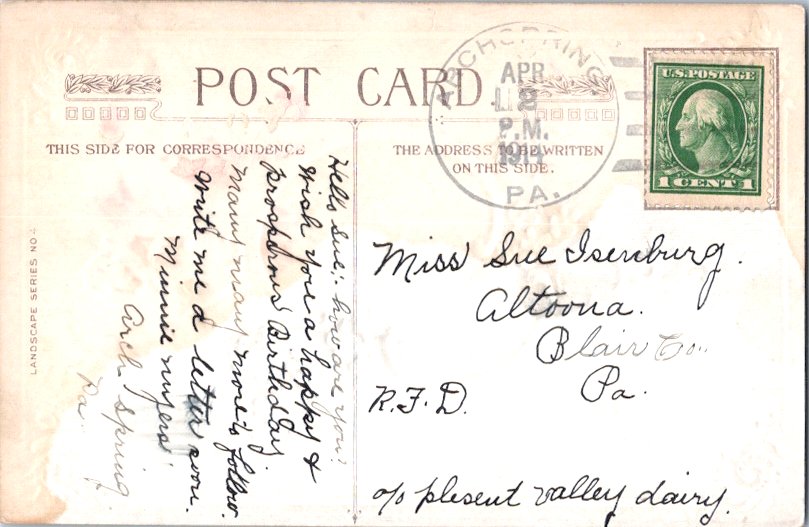 POST CARD
THIS SIDE FOR CORRESPONDENCE
THE ADDRESS TO BE WRITTEN
ON THIS SIDE.
ARCHSPRING
APR
2
P.M.
1914
PA.
U.S. POSTAGE
1 CENT 1
LANDSCAPE SERIES NO.
Hello Sue:- how are you!
Wish you a happy &
prosperous Birthday
many many more is follow.
write me a letter soon.
Minnie
Arch Spring
Pa.
Miss Sue Isenburg.
Altoona.
Blair Co..
Pa.
R.F.D.
c/o plesent valley dairy.